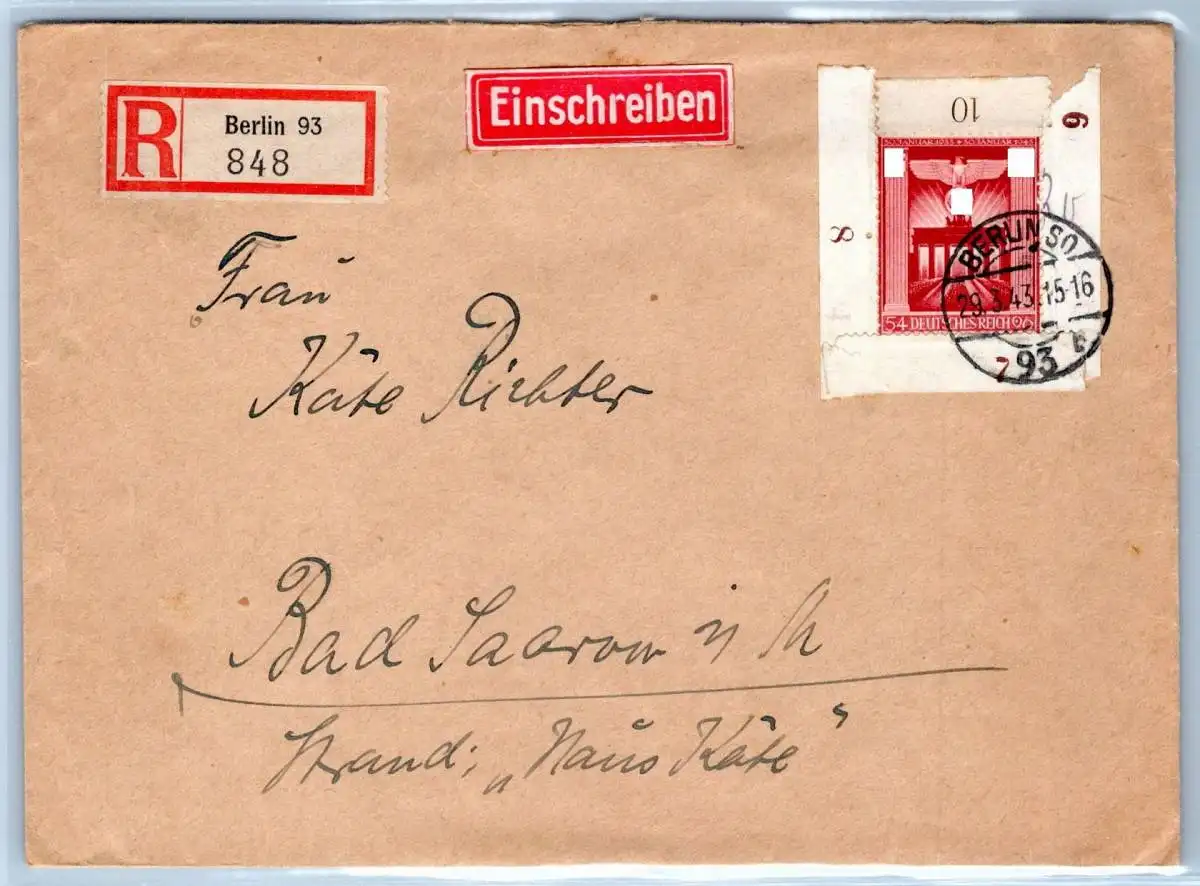 R
Berlin 93
848
Einschreiben
10
9
8
30. JANUAR 1933 * 30. JANUAR 1943
54 DEUTSCHES REICH 96
BERLIN SO
29.3.43.15-16
93
7
Frau
Käte Richter
Bad Saarow
Strand: „Haus Käte“